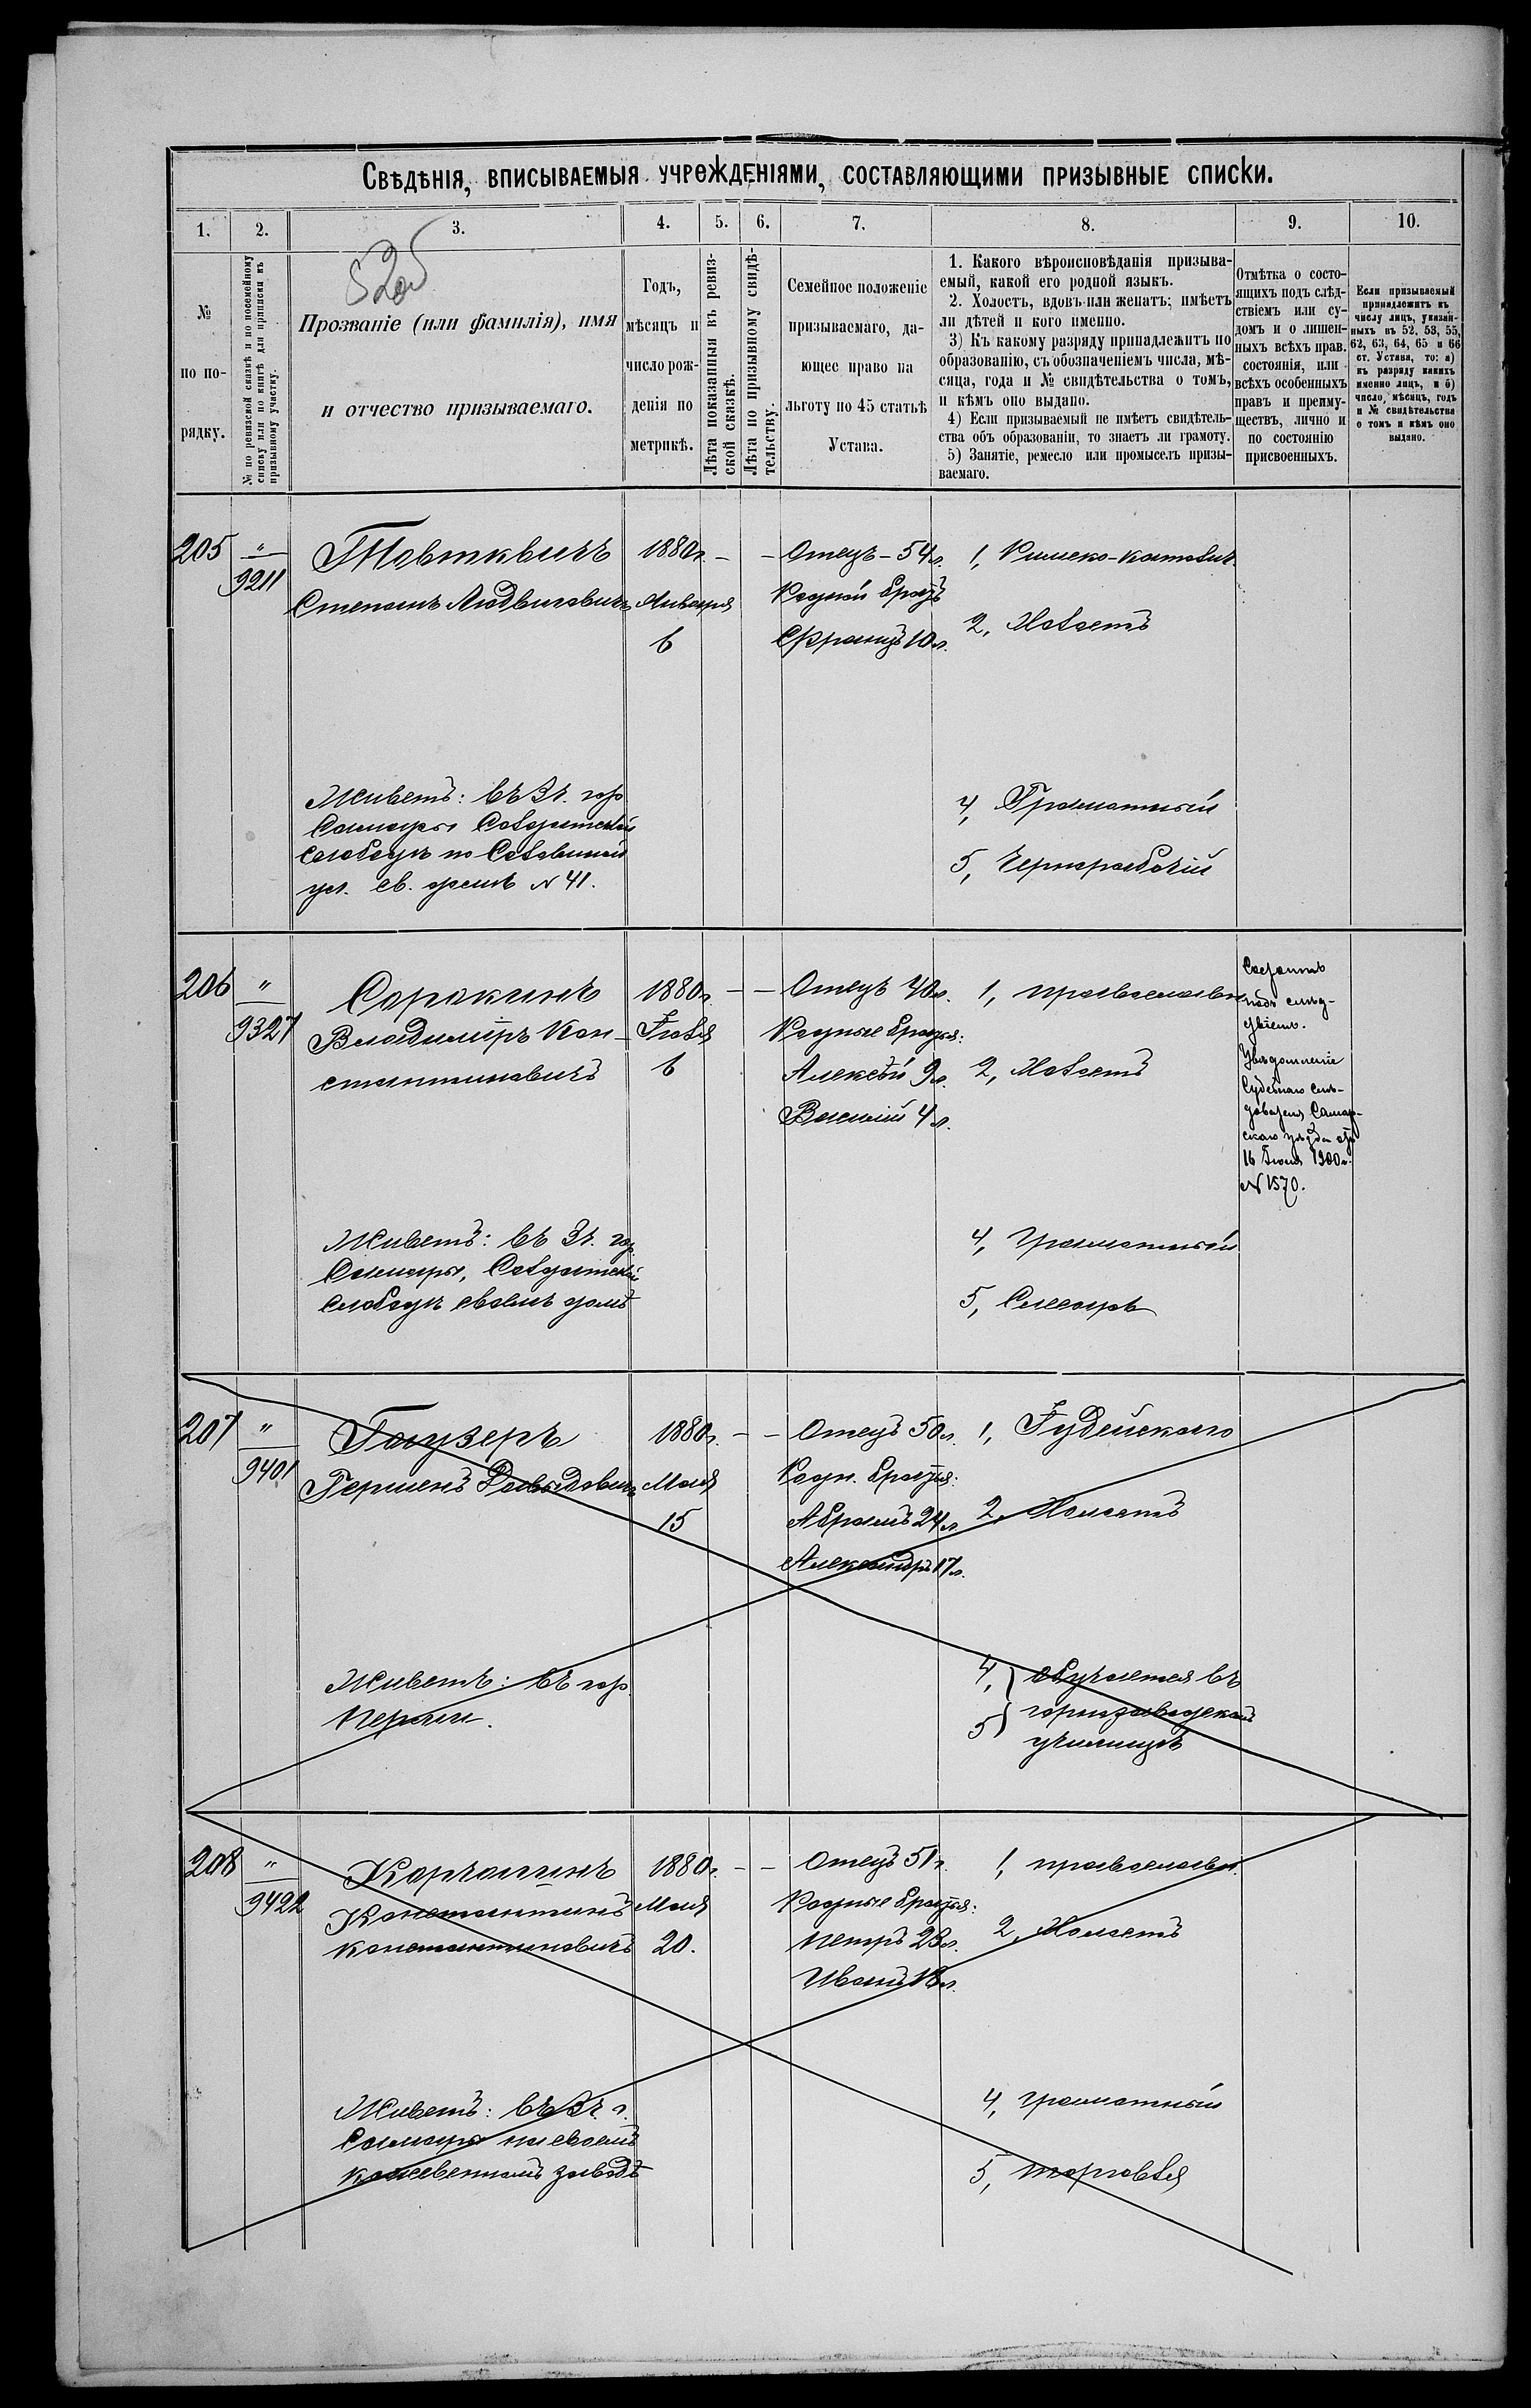 Свѣдѣнія, вписываемыя учрежденіями, составляющими призывные списки.
1. 2. 3. 4. 5. 6. 7. 8. 9. 10.
№
по по-
рядку.
№ по ревизской сказкѣ и по посемейному
списку или по книгѣ для приписки къ
призывному участку.
Прозваніе (или фамилія), имя
и отчество призываемаго.
Годъ,
мѣсяцъ и
число рож-
денія по
метрикѣ.
Лѣта показанныя въ ревиз-
ской сказкѣ.
Лѣта по призывному свидѣ-
тельству.
Семейное положеніе
призываемаго, да-
ющее право на
льготу по 45 статьѣ
Устава.
1. Какого вѣроисповѣданія призыва-
емый, какой его родной языкъ.
2. Холостъ, вдовъ или женатъ; имѣетъ
ли дѣтей и кого именно.
3) Къ какому разряду принадлежитъ по
образованію, съ обозначеніемъ числа, мѣ-
сяца, года и № свидѣтельства о томъ,
и кѣмъ оно выдано.
4) Если призываемый не имѣетъ свидѣтель-
ства объ образованіи, то знаетъ ли грамоту.
5) Занятіе, ремесло или промыселъ призы-
ваемаго.
Отмѣтка о состо-
ящихъ подъ слѣд-
ствіемъ или су-
домъ и о лишен-
ныхъ всѣхъ прав.
состоянія, или
всѣхъ особенныхъ
правъ и преиму-
ществъ, лично и
по состоянію
присвоенныхъ.
Если призываемый
принадлежитъ къ
числу лицъ, указан-
ныхъ въ 52, 53, 55,
62, 63, 64, 65 и 66
ст. Устава, то: а)
къ разряду какихъ
именно лицъ, и б)
число, мѣсяцъ, годъ
и № свидѣтельства
о томъ и кѣмъ оно
выдано.
205
"
9211
Товткевичъ
Степанъ Людвиговичъ
1880г.
Января
6
Отецъ - 54л.
Родной братъ
Францъ 10л.
1, Римско-католич.
2, Холостъ
Живетъ: въ 3ч. гор
Самары Солдатской
слободкѣ по
ул. св. домѣ № 41.
4, Грамотный
5, Чернорабочій
206
"
9327
Сорокинъ
Владиміръ Кон-
стантиновичъ
1880г.
Іюля
6
Отецъ 40л.
Родные братья:
Алексѣй 9л.
Василій 4л.
1, православн
2, Холостъ
Состоитъ
подъ слѣд-
ствіемъ.
Увѣдомленіе
Судебнаго слѣ-
дователя Самар-
скаго уѣзда отъ
16 Іюня 1900г.
№ 1570.
Живетъ: въ 3ч. гор
Самары, Солдатской
слободкѣ своемъ домѣ
4, грамотный
5, Слесарь
207
"
9401
Гаузеръ
Гершенъ Давыдовичъ
1880г.
Мая
15
Отецъ 50л.
Родн. братья:
Абрамъ 24л.
Александръ 17л.
1, Іудейскаго
2, Холостъ
Живетъ: въ гор.
Перми.
4,
5
обучается въ
горнозаводскомъ
училищѣ
208
"
9422
Корчагинъ
Константинъ
Константиновичъ
1880г.
Мая
20.
Отецъ 51г.
Родные братья:
Петръ 23л.
Иванъ 18л.
1, православн.
2, Холостъ
Живетъ: въ 3ч. г.
Самары на своемъ
кожевенномъ заводѣ
4, грамотный
5, торговля